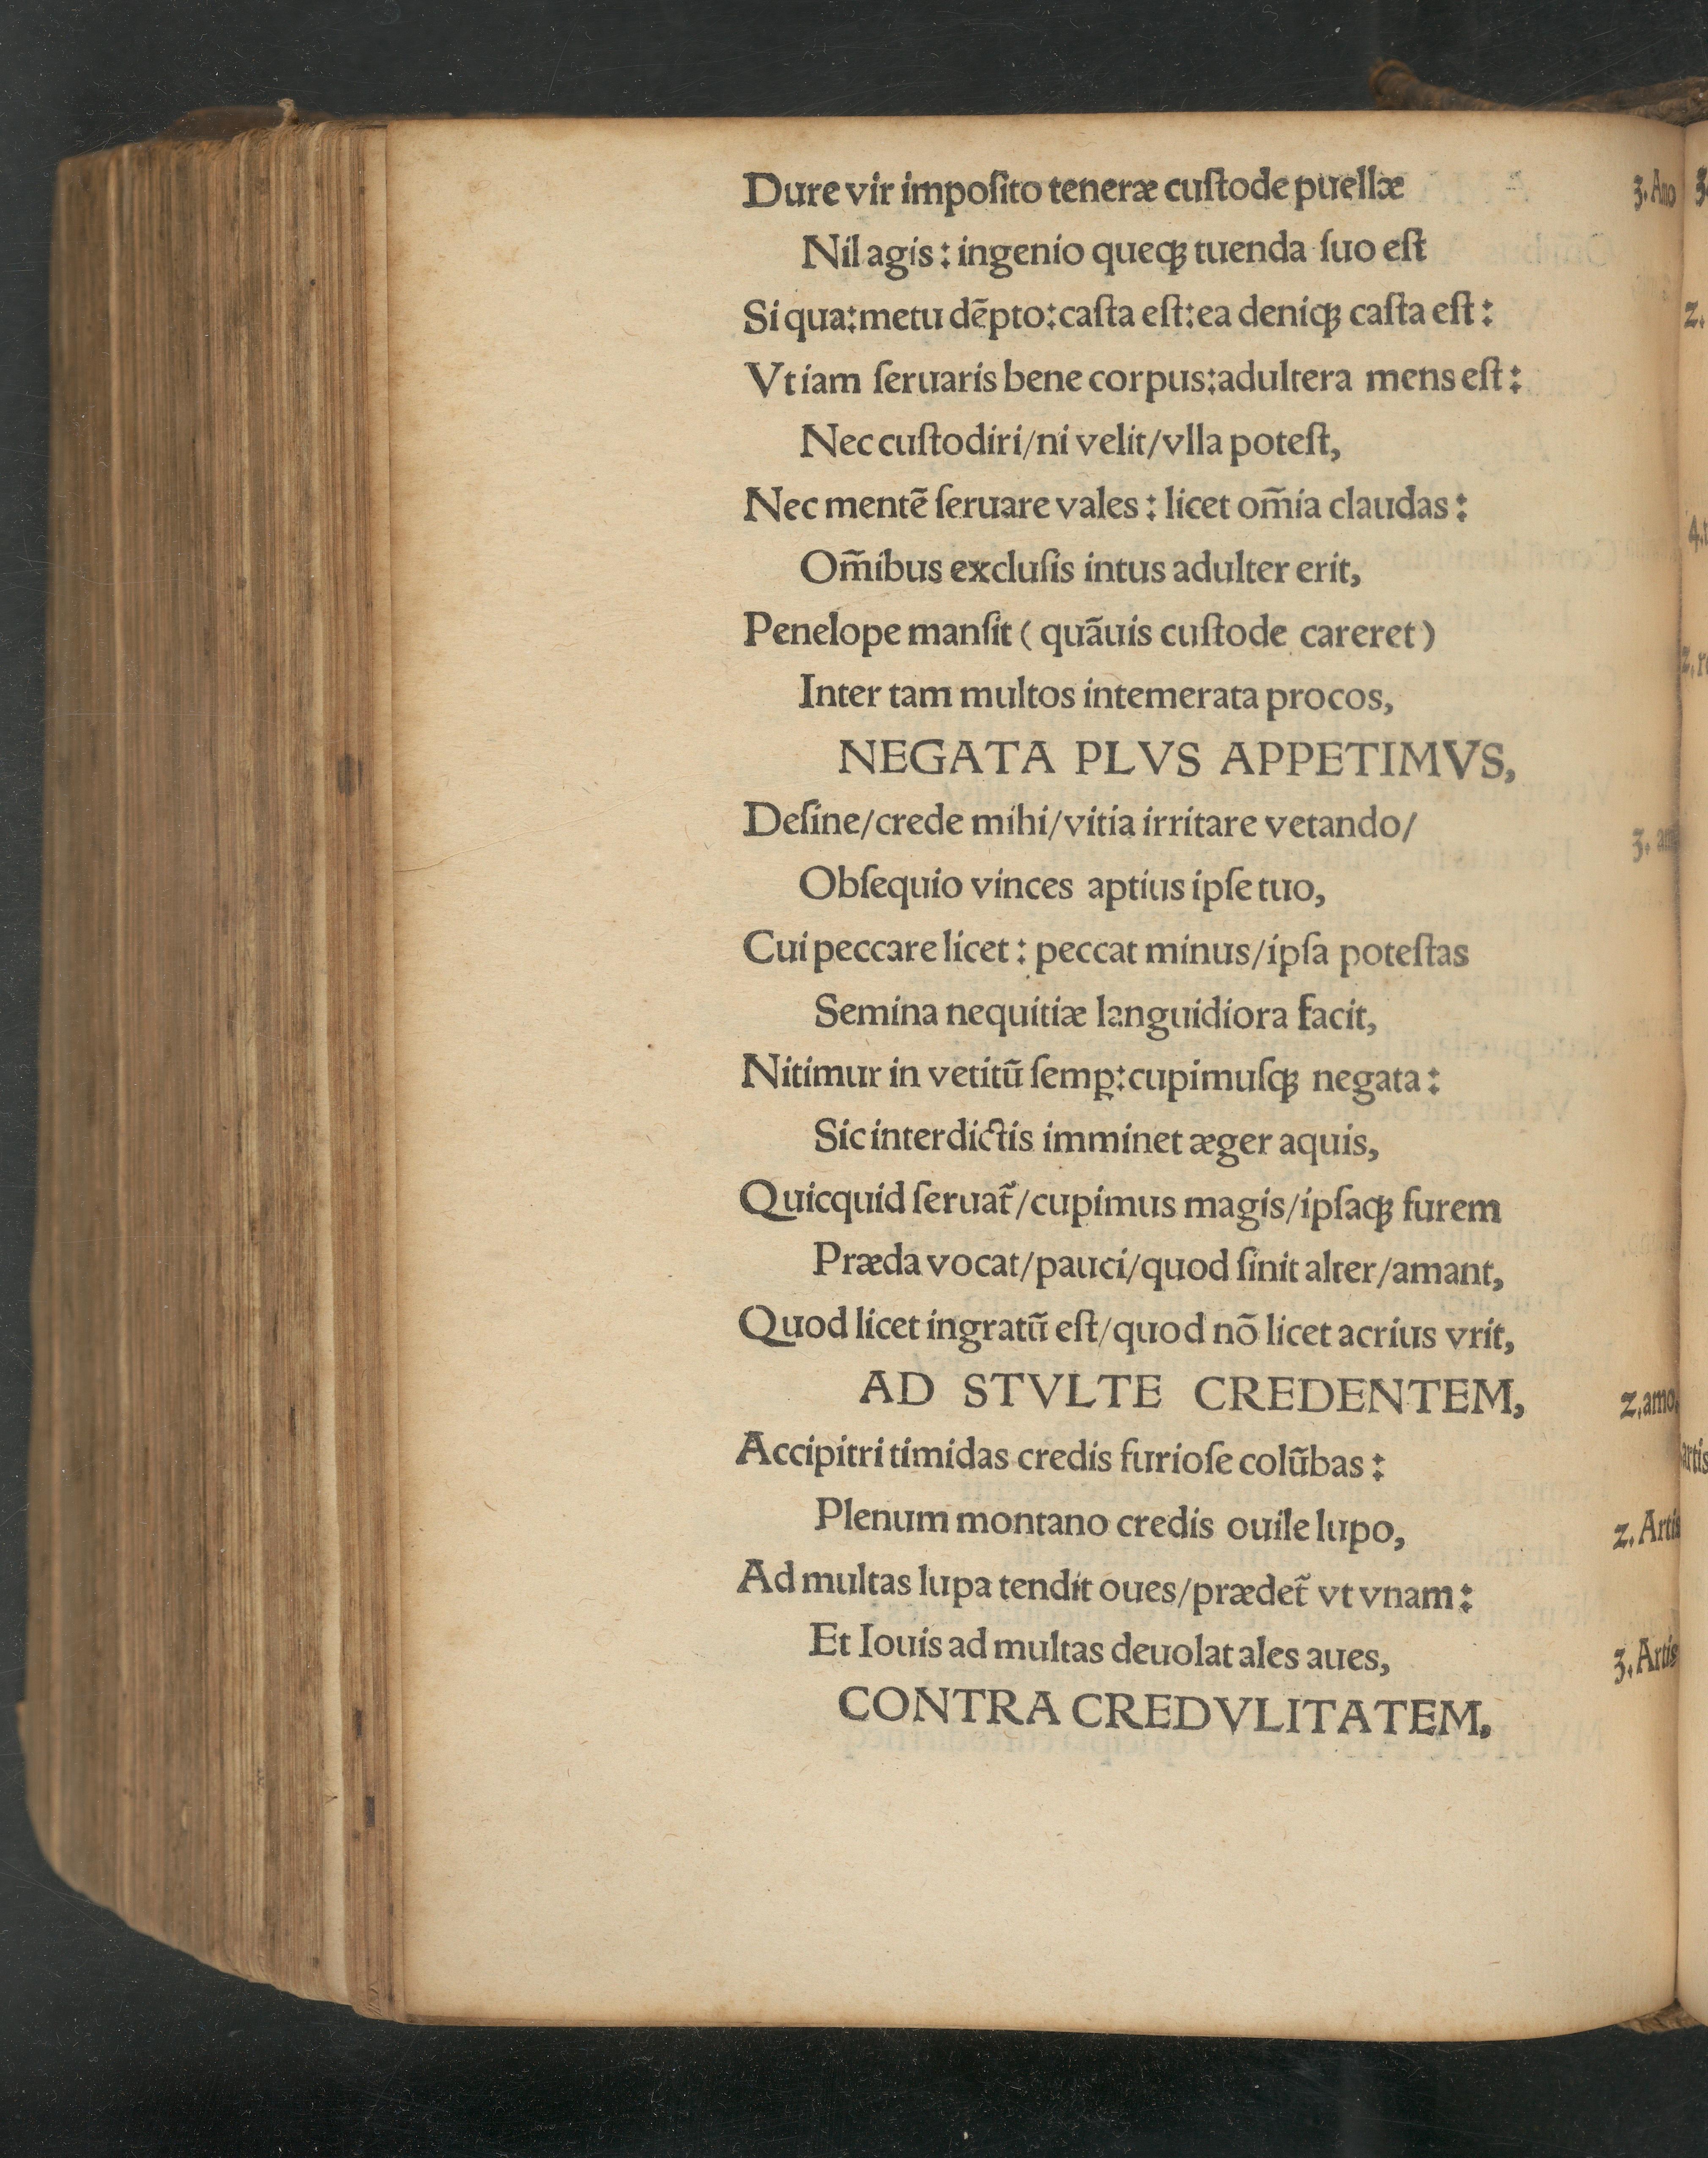 Dure vir impoſito teneræ cuſtode puellæ 3. Amo
Nil agis : ingenio queqꝫ tuenda ſuo eſt
Si qua:metu dēpto:caſta eſt:ea deniqꝫ caſta eſt :
Vt iam ſeruaris bene corpus:adultera mens eſt :
Nec cuſtodiri/ni velit/vlla poteſt,
Nec mentē ſeruare vales : licet om̄ia claudas :
Om̄ibus excluſis intus adulter erit,
Penelope manſit ( quāuis cuſtode careret )
Inter tam multos intemerata procos,
NEGATA PLVS APPETIMVS,
Deſine/crede mihi/vitia irritare vetando/ 3. am
Obſequio vinces aptius ipſe tuo,
Cui peccare licet : peccat minus/ipſa poteſtas
Semina nequitiæ languidiora facit,
Nitimur in vetitū ſemꝑ:cupimuſqꝫ negata :
Sic interdictis imminet æger aquis,
Quicquid ſeruat̄/cupimus magis/ipſaqꝫ furem
Præda vocat/pauci/quod ſinit alter/amant,
Quod licet ingratū eſt/quod nō licet acrius vrit,
AD STVLTE CREDENTEM, 2.amo.
Accipitri timidas credis furioſe colūbas :
Plenum montano credis ouile lupo, 2. Artis
Ad multas lupa tendit oues/prædet̄ vt vnam :
Et Iouis ad multas deuolat ales aues, 3. Artis
CONTRA CREDVLITATEM,